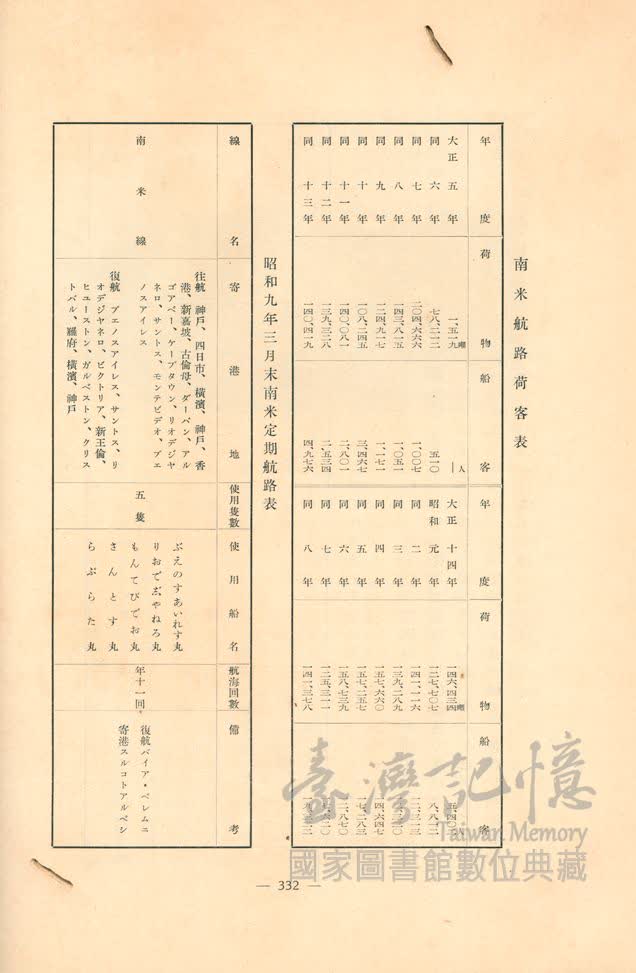 南米航路荷客表
年度 荷物 船客
大正五年 一、五一九噸 ―人
同六年 七八、二一二 五一〇
同七年 二〇四、六六六 一、〇〇七
同八年 一四三、八一五 一、〇五一
同九年 一二四、九一七 一、一七一
同十年 一〇八、二四五 三、四六七
同十一年 一四〇、〇八一 二、八〇一
同十二年 一三九、三二八 二、五三四
同十三年 一四〇、四一九 四、九七六
年度 荷物 船客
大正十四年 一四六、四三四噸
昭和元年 一二七、七〇七
同二年 一四二、一一六
同三年 一三九、二八九
同四年 一五七、六六〇
同五年 一五七、二五七 一七、二八三
同六年 一五八、七三九
同七年 一二五、三一一
同八年 一四一、三七八
昭和九年三月末南米定期航路表
線名 寄港地 使用隻數 使用船名 航海回數 備考
南米線
往航 神戸、四日市、橫濱、神戸、香
港、新嘉坡、古倫母、ダーバン、アル
ゴアベー、ケープタウン、リオデジヤ
ネロ、サントス、モンテビデオ、ブエ
ノスアイレス
復航 ブエノスアイレス、サントス、リ
オデジヤネロ、ビクトリア、新王倫、
ヒユーストン、ガルベストン、クリス
トバル、羅府、橫濱、神戸
五隻
ぶえのすあいれす丸
りおでじやねろ丸
もんてびでお丸
さんとす丸
らぷらた丸
年十一回
復航バイア・ベレムニ
寄港スルコトアルベシ
— 332 —
臺灣記憶
Taiwan Memory
國家圖書館數位典藏